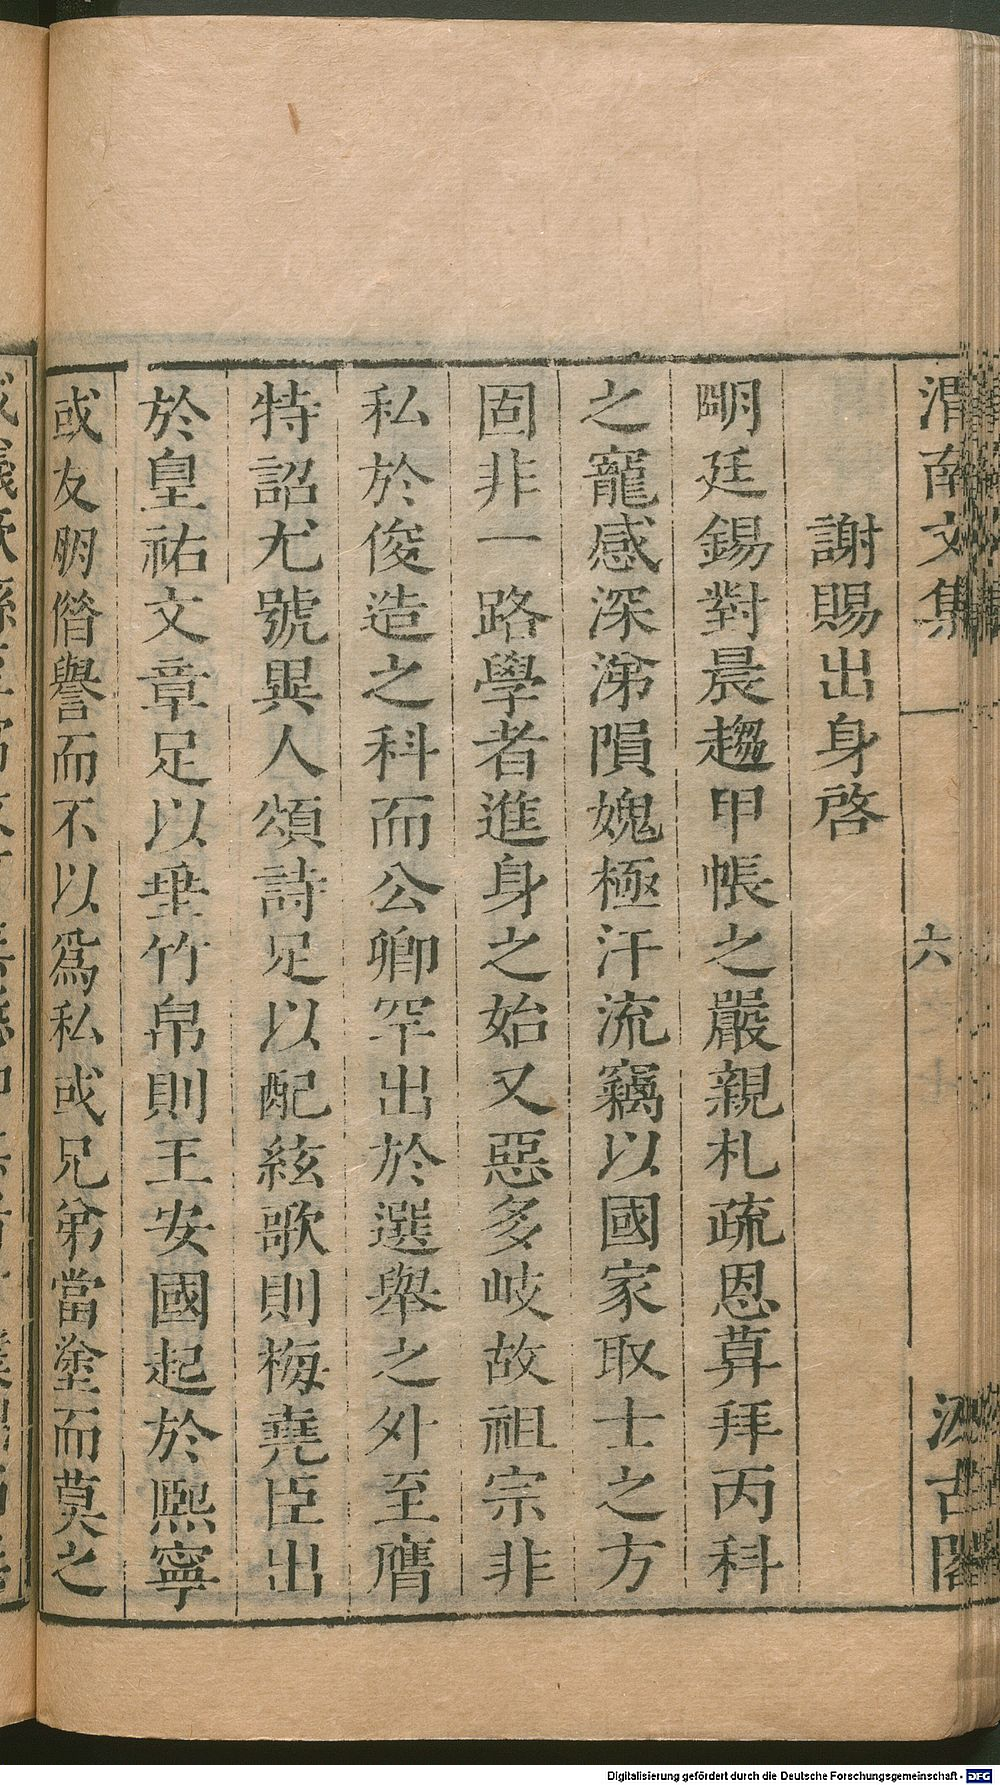 渭南文集
六
汲古閣
謝賜出身啓
明廷錫對晨趨甲帳之嚴親札疏恩葬拜丙科
之寵感深涕隕媿極汗流竊以國家取士之方
固非一路學者進身之始又惡多岐故祖宗非
私於俊造之科而公卿罕出於選舉之外至膺
特詔尤號異人頌詩足以配絃歌則梅堯臣出
於皇祐文章足以垂竹帛則王安國起於熙寧
或友朋僭譽而不以爲私或兄弟當塗而莫之
Digitalisierung gefördert durch die Deutsche Forschungsgemeinschaft - DFG